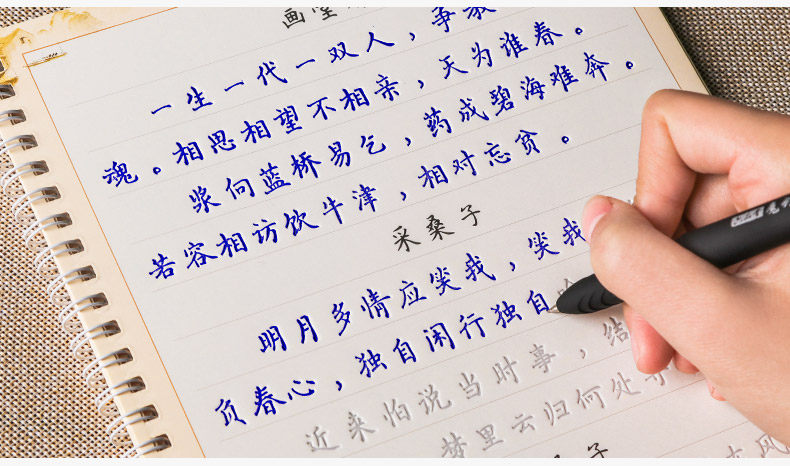 画堂
一生一代一双人，争教
魂。相思相望不相亲，天为谁春。
浆向蓝桥易乞，药成碧海难奔。
若容相访饮牛津，相对忘贫。
采桑子
明月多情应笑我，笑我
负春心，独自闲行独自
近来怕说当时事，结
梦里云归何处寻
子